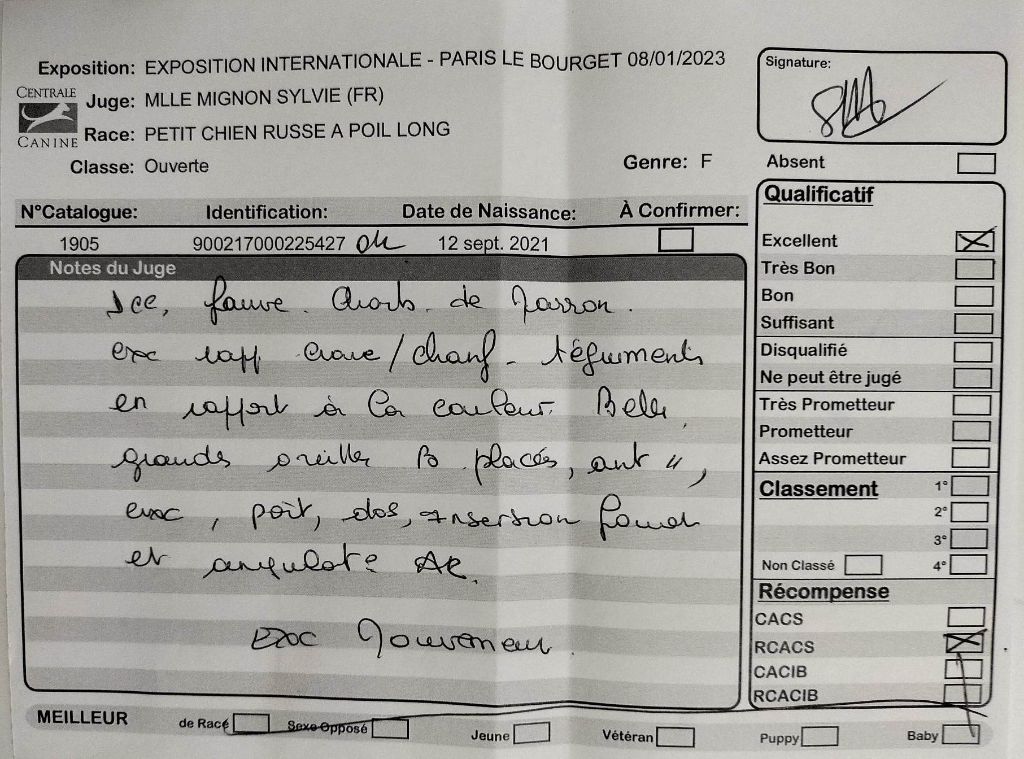 Exposition: EXPOSITION INTERNATIONALE - PARIS LE BOURGET 08/01/2023
CENTRALE CANINE
Juge: MLLE MIGNON SYLVIE (FR)
Race: PETIT CHIEN RUSSE A POIL LONG
Classe: Ouverte
Genre: F
N°Catalogue: Identification: Date de Naissance: À Confirmer:
1905 900217000225427 ok 12 sept. 2021
Notes du Juge
fauve. de
exc rapp crane/chanf - téguments
en rapport à la couleur. Belles
grandes oreilles B placés, ant ",
exc, poit, dos, insertion fouet
et angulat° AR.
exc Mouvement.
Signature:
Absent
Qualificatif
Excellent
Très Bon
Bon
Suffisant
Disqualifié
Ne peut être jugé
Très Prometteur
Prometteur
Assez Prometteur
Classement
1°
2°
3°
Non Classé 4°
Récompense
CACS
RCACS
CACIB
RCACIB
MEILLEUR de Race Sexe Opposé Jeune Vétéran Puppy Baby